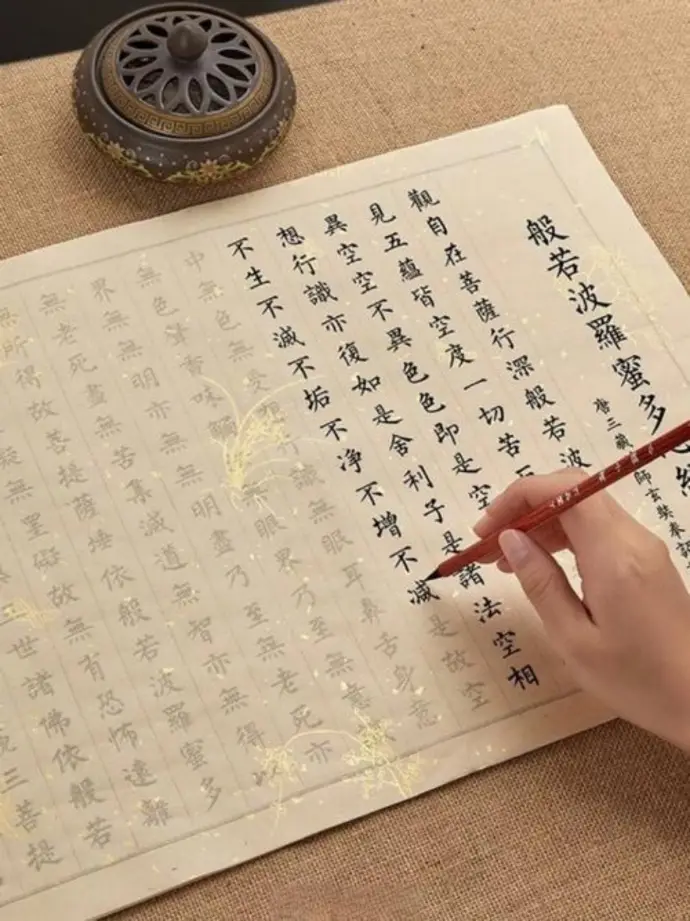 般若波羅蜜多
唐三藏 師玄奘奉詔
觀自在菩薩行深般若波
見五蘊皆空度一切苦
異空空不異色色即是空
想行識亦復如是舍利子是諸法空相
不生不滅不垢不净不增不減是故空
中無色無受想行識無眼耳鼻舌身意
無色聲香味觸 無眼界乃至無意
界無無明亦無無明盡乃至無老死亦
無老死盡無苦集滅道無智亦無得以
無所得故菩提薩埵依般若波羅蜜多
礙無罣礙故無有恐怖遠離
世諸佛依般若
三菩提